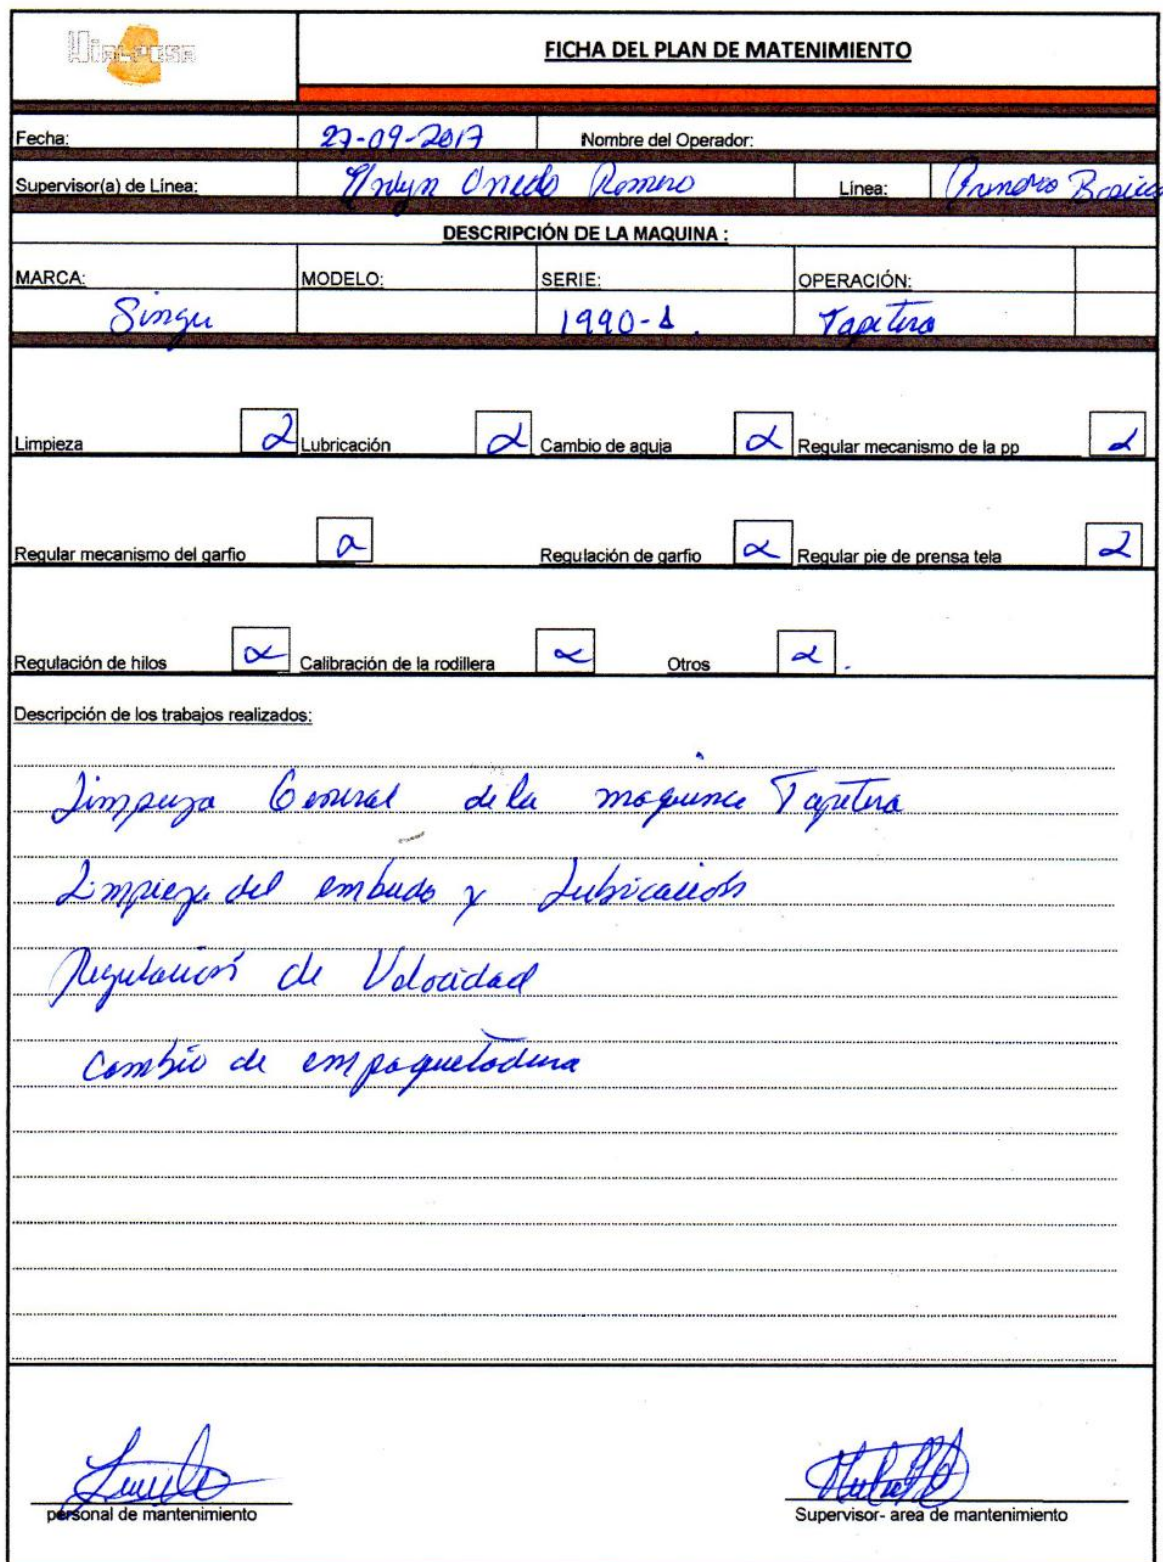 FICHA DEL PLAN DE MATENIMIENTO
Fecha: 27-09-2017 Nombre del Operador:
Supervisor(a) de Línea: Romero Línea:
DESCRIPCIÓN DE LA MAQUINA :
MARCA: MODELO: SERIE: OPERACIÓN:
1990-1 Tapetera
Limpieza Lubricación Cambio de aguja Regular mecanismo de la pp
Regular mecanismo del garfio Regulación de garfio Regular pie de prensa tela
Regulación de hilos Calibración de la rodillera Otros
Descripción de los trabajos realizados:
Limpieza General de la maquina Tapetera
Limpieza del embudo y Lubricación
Regulación de Velocidad
Cambio de empaquetadura
personal de mantenimiento Supervisor- area de mantenimiento